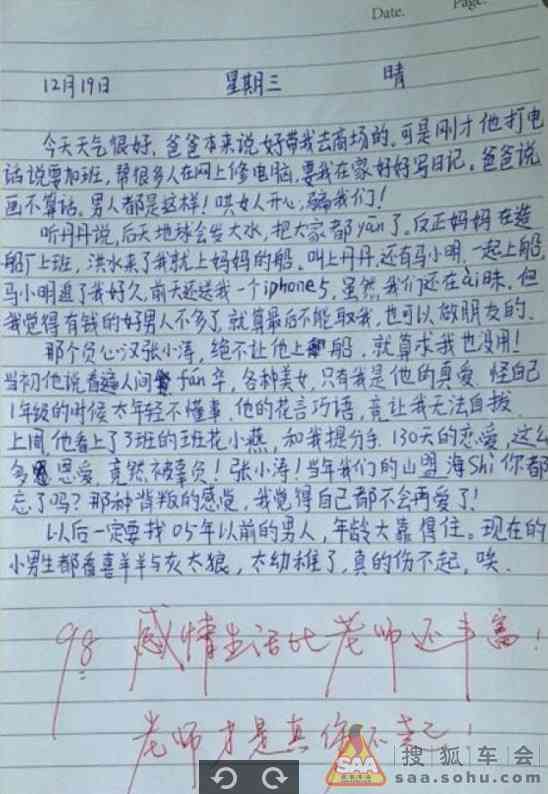 Date.
Page.
12月19日 星期三 晴
今天天气很好，爸爸本来说好带我去商场的。可是刚才他打电
话说要加班，帮很多人在网上修电脑，要我在家好好写日记。爸爸说
画不算话。男人都是这样！哄女人开心，骗我们！
听丹丹说，后天地球会发大水，把大家都yān了。反正妈妈在造
船厂上班，洪水来了我就上妈妈的船。叫上丹丹，还有马小明，一起上船。
马小明追了我好久，前天还送我一个iphone5，虽然，我们还在ài昧。但
我觉得有钱的好男人不多了，就算最后不能取我，也可以做朋友的。
那个负心汉张小涛，绝不让他上船，就算求我也没用！
当初他说看遍人间fán华，各种美女，只有我是他的真爱。怪自己
1年级的时候太年轻不懂事，他的花言巧语，竟让我无法自拔
上周，他看上了3班的班花小燕，和我提分手，130天的恋爱，这么
多恩爱，竟然被辜负！张小涛！当年我们的山盟海Shi你都
忘了吗？那种背叛的感觉，我觉得自己都不会再爱了！
以后一定要找05年以前的男人，年龄大靠得住。现在的
小男生都看喜羊羊与灰太狼，太幼稚了，真的伤不起，唉。
98 感情生活比老师还丰富！
老师才是真伤不起！
SAA
搜狐车会
saa.sohu.com